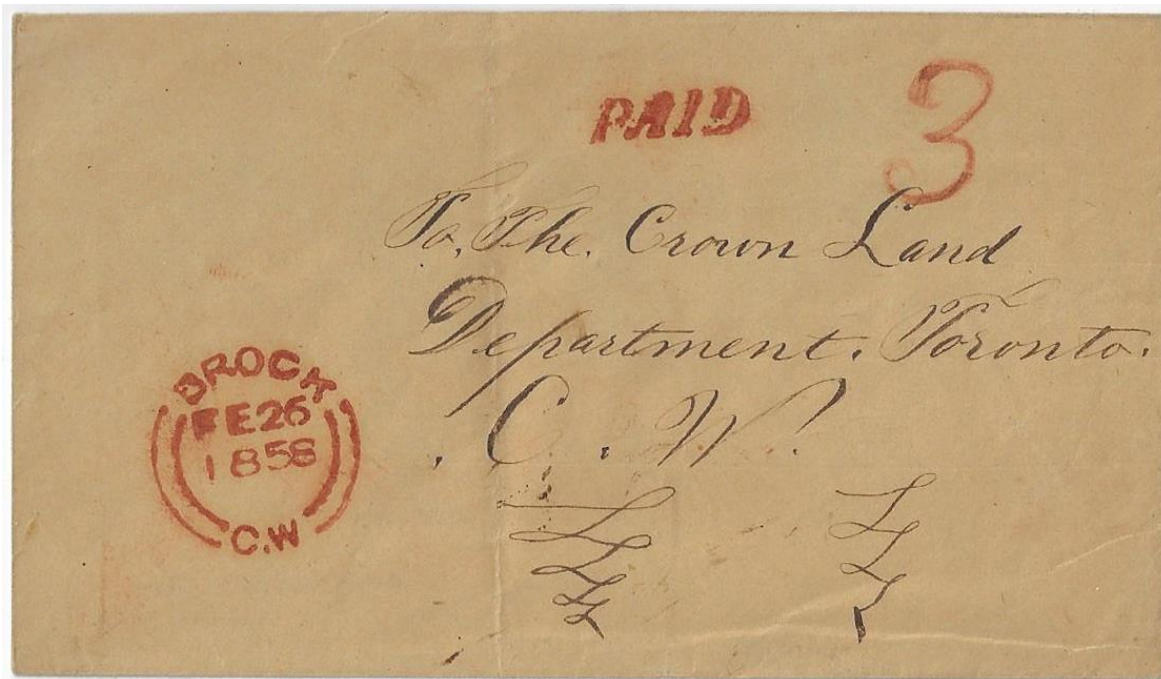 PAID 3
To, The. Crown Land
Department. Toronto.
. C. W.
BROCK
FE 26
1858
C.W